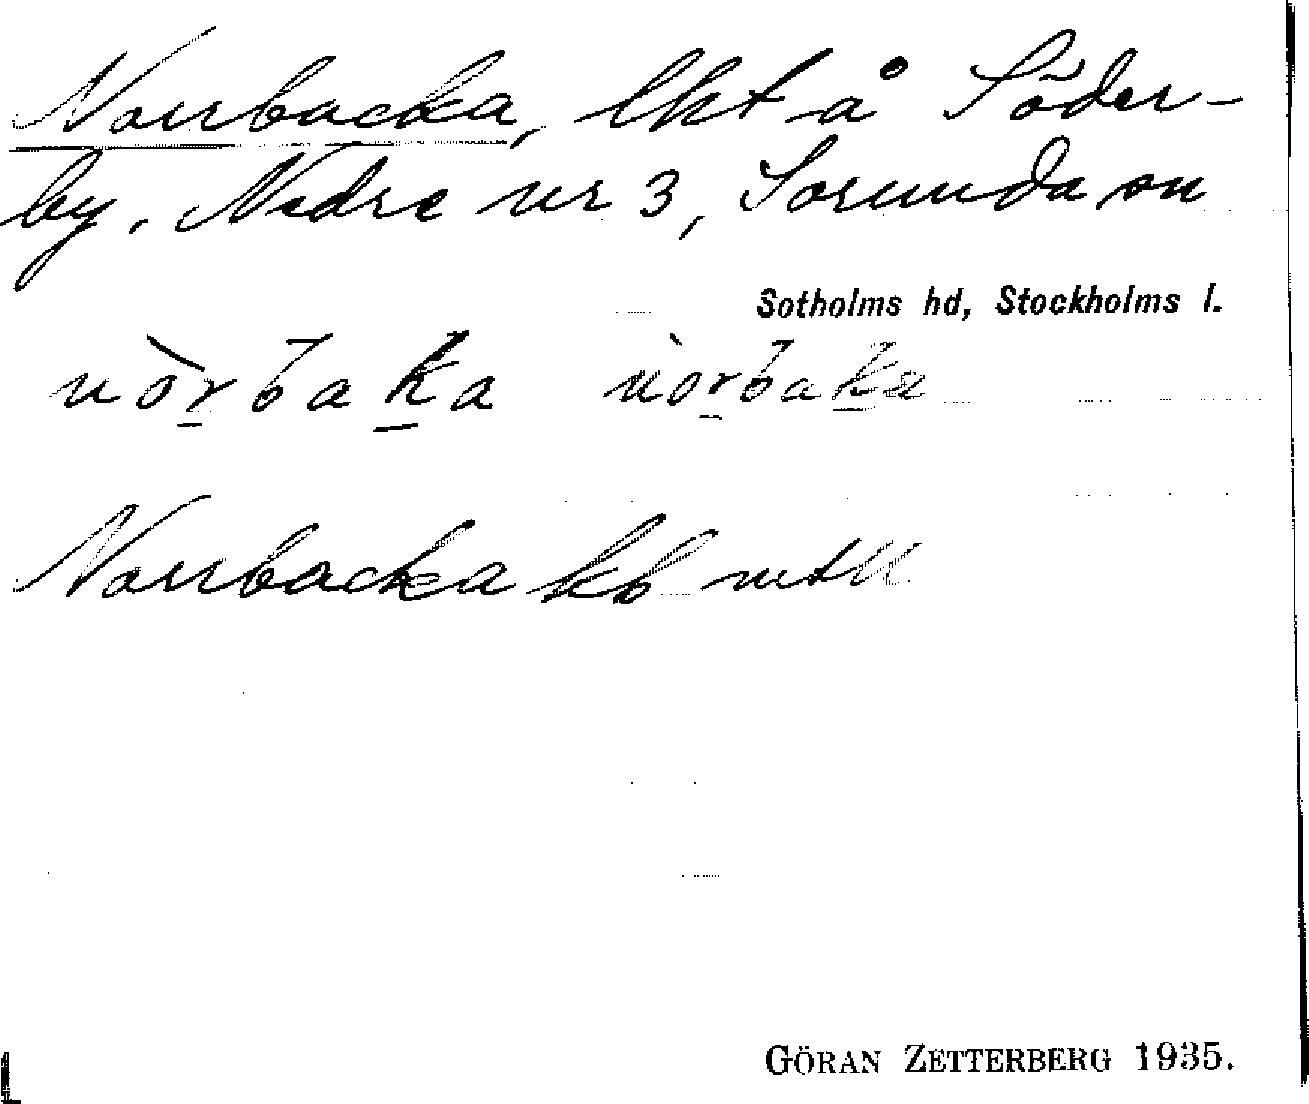 Norrbacka, lht å Söder-
by, Nedre nr 3, Sorunda sn
Sotholms hd, Stockholms l.
nòrbaka nòrbaka
Norrbacka kb
GÖRAN ZETTERBERG 1935.